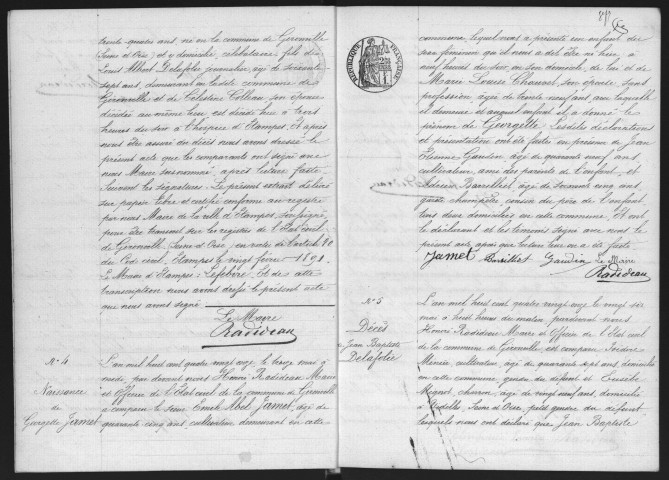 trente quatre ans, né en la commune de Gironville
(Seine et Oise) et y domicilié, célibataire fils de
Louis Albert Delafolie journalier, âgé de soixante
sept ans, demeurant en ladite commune de
Gironville et de Célestine Colleau, son épouse
décédée au même lieu, est décédé hier à trois
heures du soir à l'hospice d'Etampes. Et après
nous être assuré du décès nous avons dressé le
présent acte que les comparants ont signé avec
nous Maire susnommé, après lecture faite.
Suivent les signatures. Le présent extrait délivré
sur papier libre et certifié conforme au registre
par nous Maire de la ville d'Etampes, soussigné,
pour être transcrit sur les registres de l'Etat civil
de Gironville, Seine et Oise, en vertu de l'article 80
du Code civil. Etampes le vingt février 1891.
Le Maire d'Etampes: Lefebvre. Et de cette
transcription nous avons dressé le présent acte
que nous avons signé.
Le Maire
Radideau
N° 4
Naissance
de
Georgette Jamet
L'an mil huit cent quatre vingt onze le treize mai à
midi par devant nous Henri Radideau Maire
et Officier de l'Etat civil de la commune de Gironville
a comparu le sieur Emile Abel Jamet, âgé de
quarante cinq ans, cultivateur demeurant en cette
RÉPUBLIQUE FRANÇAISE
commune lequel nous a présenté un enfant du
sexe féminin qu'il nous a dit être né hier à
neuf heures du soir en son domicile, de lui et de
Marie Louise Chauvet, son épouse, sans
profession, âgée de trente neuf ans, avec laquelle
il demeure et auquel enfant il a donné le
prénom de Georgette. Lesdites déclarations
et présentation ont été faites en présence de Jean
Etienne Gaudin, âgé de quarante neuf ans
cultivateur, ami des parents de l'enfant, et
âgé de soixante cinq ans,
garde champêtre, cousin du père de l'enfant
tous deux domiciliés en cette commune. Et ont
le déclarant et les témoins signé avec nous le
présent acte, après que lecture leur en a été faite
Jamet Gaudin Le Maire
Radideau
N° 5
Décès
de Jean Baptiste
Delafolie
L'an mil huit cent quatre vingt onze le vingt six
mai à huit heures du matin pardevant nous
Henri Radideau Maire et Officier de l'Etat civil
de la commune de Gironville, est comparu Isidore
cultivateur, âgé de quarante sept ans, domicilié
en cette commune, gendre du défunt et Eusèbe
Mignot, charron, âgé de vingt neuf ans, domicilié
Seine et Oise, petit gendre du défunt
lesquels nous ont déclaré que Jean Baptiste